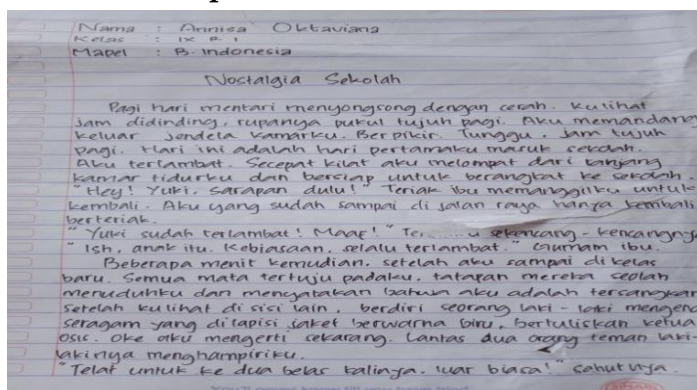 Nama : Annisa Oktaviana
Kelas : IX R 1
Mapel : B. Indonesia
Nostalgia Sekolah
Pagi hari mentari menyongsong dengan cerah. Kulihat
jam didinding, rupanya pukul tujuh pagi. Aku memandang
keluar jendela kamarku. Berpikir. Tunggu, jam tujuh
pagi. Hari ini adalah hari pertamaku masuk sekolah.
Aku terlambat. Secepat kilat aku melompat dari ranjang
kamar tidurku dan bersiap untuk berangkat ke sekolah.
"Hey! Yuki, sarapan dulu!" Teriak ibu memanggilku untuk
kembali. Aku yang sudah sampai di jalan raya hanya kembali
berteriak.
"Yuki sudah terlambat! Maaf!" sekencang-kencangnya
"Ish, anak itu. Kebiasaan, selalu terlambat." Gumam ibu.
Beberapa menit kemudian, setelah aku sampai di kelas
baru. Semua mata tertuju padaku, tatapan mereka seolah
menuduhku dan menyatakan bahwa aku adalah tersangkan
setelah kulihat di sisi lain, berdiri seorang laki-laki mengena
seragam yang dilapisi jaket berwarna biru, bertuliskan ketua
osis. Oke aku mengerti sekarang. Lantas dua orang teman laki-
lakinya menghampiriku.
"Telat untuk ke dua belas kalinya, luar biasa!" sahutnya.